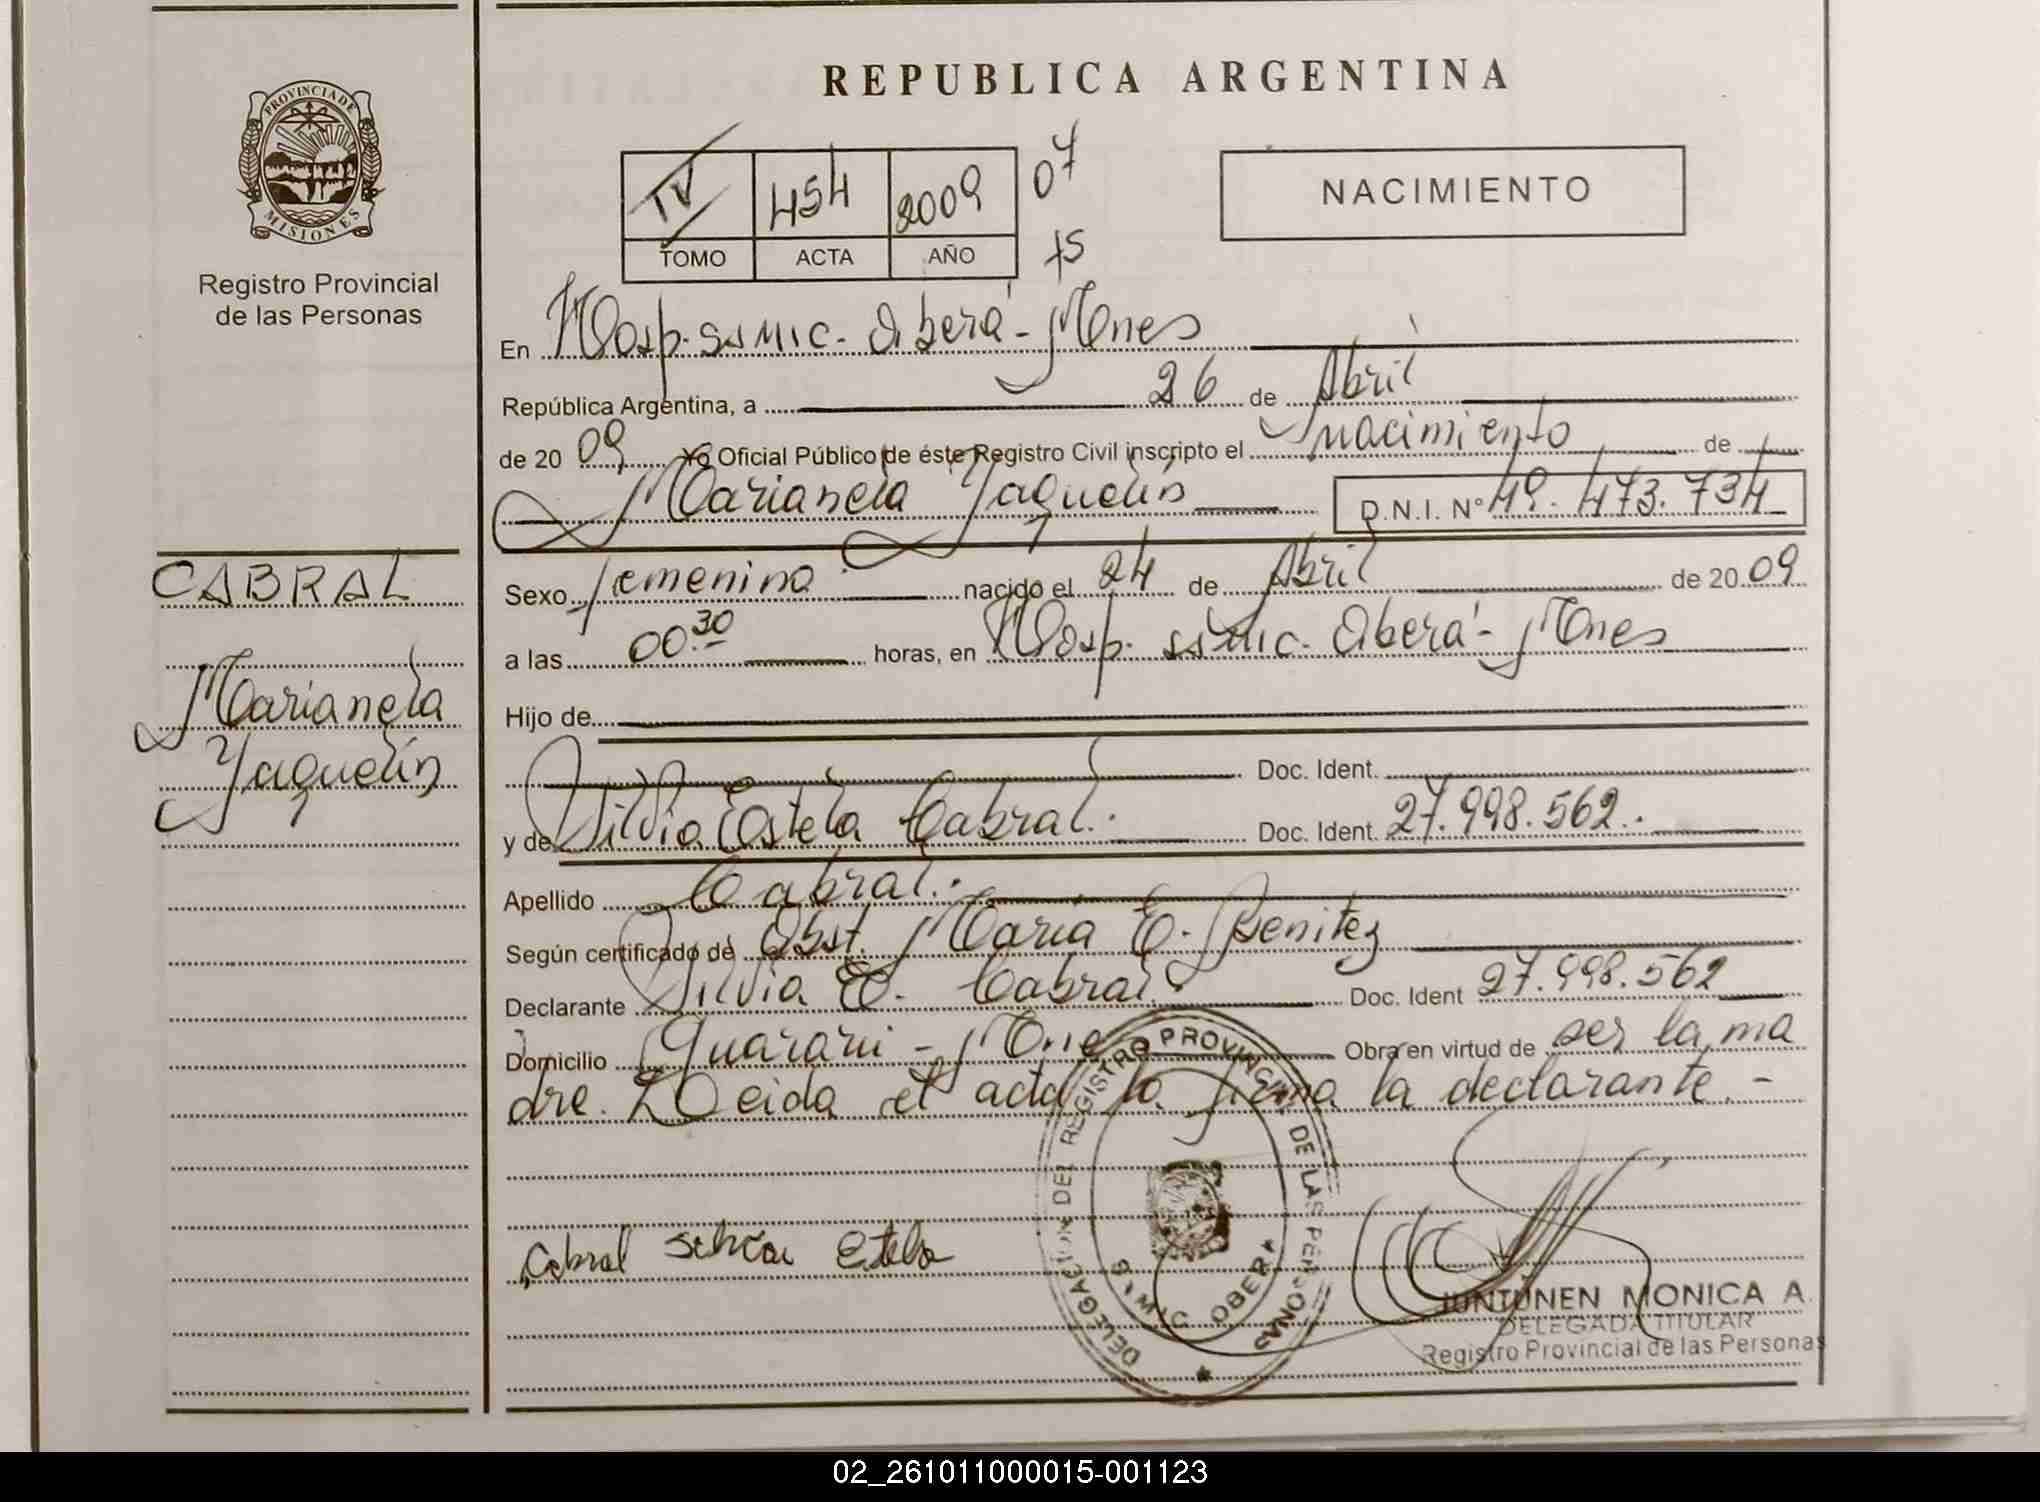 REPUBLICA ARGENTINA
PROVINCIA DE
MISIONES
Registro Provincial
de las Personas
IV 454 2009 07
TOMO ACTA AÑO 15
NACIMIENTO
En Hosp. SSMIC. Oberá - Mnes
República Argentina, a 26 de Abril
de 20 09 Yo Oficial Público de éste Registro Civil inscripto el nacimiento de
Marianela Yaquelin D.N.I. Nº 49.473.734
CABRAL
Marianela
Yaquelin
Sexo femenino nacido el 24 de Abril de 20 09
a las 00.30 horas, en Hosp. SSMIC. Oberá - Mnes
Hijo de
Doc. Ident.
y de Silvia Estela Cabral. Doc. Ident. 27.998.562.
Apellido Cabral.
Según certificado de Obst. Maria E. Benitez
Declarante Silvia E. Cabral. Doc. Ident 27.998.562
Domicilio Guaraní - Mnes Obra en virtud de ser la ma
dre. Leida el acta la firma la declarante. -
Cabral Silvia Estela
DELEGACION DEL REGISTRO PROVINCIAL DE LAS PERSONAS
OBERA
JUNTUNEN MONICA A.
DELEGADA TITULAR
Registro Provincial de las Personas
02_261011000015-001123